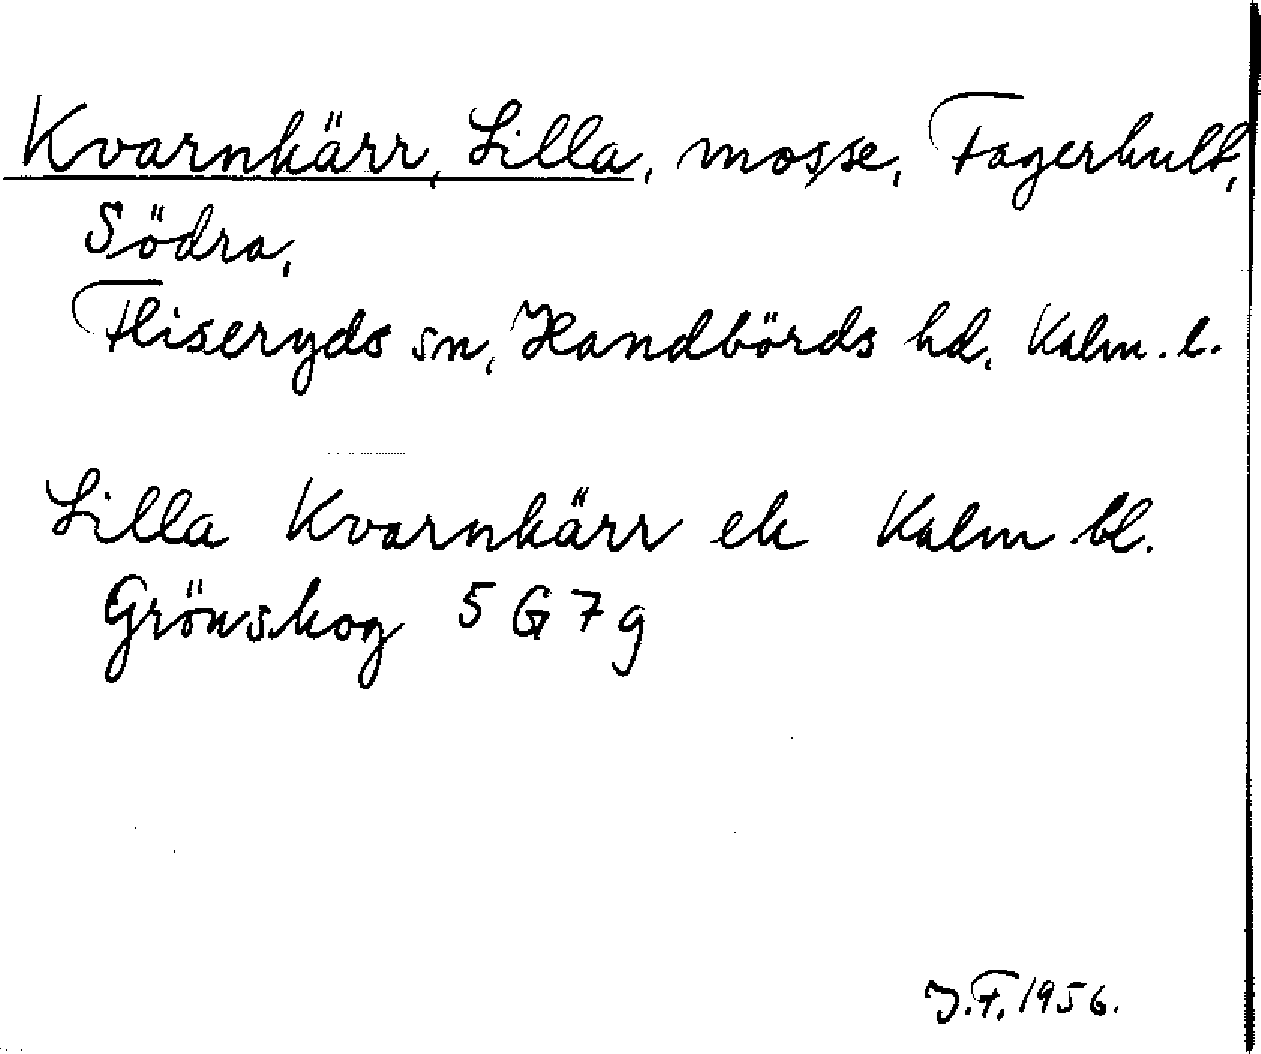 Kvarnkärr, Lilla, mosse, Fagerhult,
Södra,
Fliseryds sn, Handbörds hd, Kalm. l.
Lilla Kvarnkärr ek Kalm bl.
Grönskog 5 G 7 g
J.F. 1956.